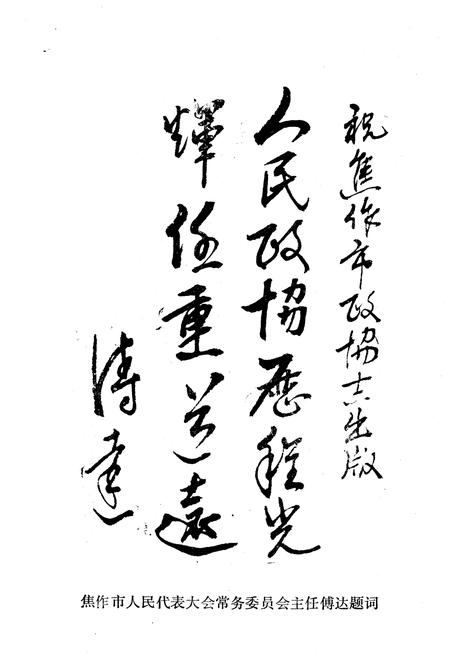 祝焦作市政协志出版
人民政協歷程光
輝任重道遠
傅達
焦作市人民代表大会常务委员会主任傅达题词